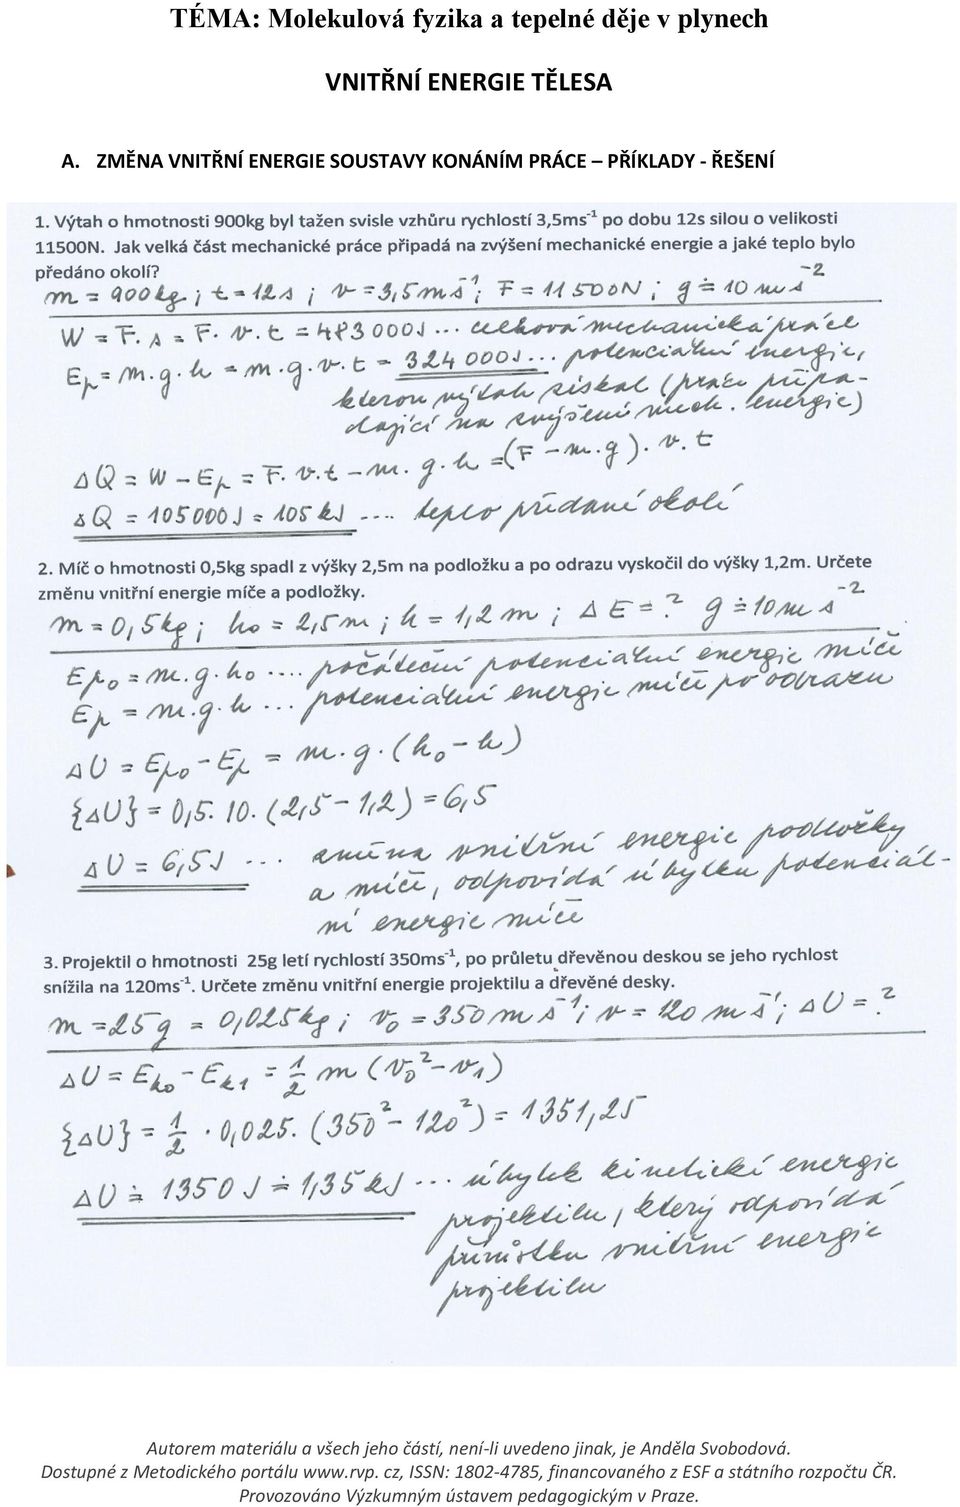 TÉMA: Molekulová fyzika a tepelné děje v plynech
VNITŘNÍ ENERGIE TĚLESA
A. ZMĚNA VNITŘNÍ ENERGIE SOUSTAVY KONÁNÍM PRÁCE – PŘÍKLADY - ŘEŠENÍ
1. Výtah o hmotnosti 900kg byl tažen svisle vzhůru rychlostí 3,5ms⁻¹ po dobu 12s silou o velikosti
11500N. Jak velká část mechanické práce připadá na zvýšení mechanické energie a jaké teplo bylo
předáno okolí?
m = 900kg ; t = 12s ; v = 3,5ms⁻¹ ; F = 11500N ; g ≐ 10ms⁻²
W = F.s = F.v.t = 483000J ... celková mechanická práce
Ep = m.g.h = m.g.v.t = 324000J ... potenciální energie,
kterou výtah získal (práce připa-
dající na zvýšení mech. energie)
ΔQ = W - Ep = F.v.t - m.g.h = (F - m.g).v.t
ΔQ = 105000J = 105kJ .... teplo předané okolí
2. Míč o hmotnosti 0,5kg spadl z výšky 2,5m na podložku a po odrazu vyskočil do výšky 1,2m. Určete
změnu vnitřní energie míče a podložky.
m = 0,5kg ; h₀ = 2,5m ; h = 1,2m ; ΔE = ? g ≐ 10ms⁻²
Ep₀ = m.g.h₀ .... počáteční potenciální energie míče
Ep = m.g.h ... potenciální energie míče po odrazu
ΔU = Ep₀ - Ep = m.g.(h₀ - h)
{ΔU} = 0,5.10.(2,5 - 1,2) = 6,5
ΔU = 6,5J ... změna vnitřní energie podložky
a míče, odpovídá úbytku potenciál-
ní energie míče
3. Projektil o hmotnosti 25g letí rychlostí 350ms⁻¹, po průletu dřevěnou deskou se jeho rychlost
snížila na 120ms⁻¹. Určete změnu vnitřní energie projektilu a dřevěné desky.
m = 25g = 0,025kg ; v₀ = 350ms⁻¹ ; v = 120ms⁻¹ ; ΔU = ?
ΔU = Ek₀ - Ek₁ = 1/2 m (v₀² - v₁²)
{ΔU} = 1/2 . 0,025.(350² - 120²) = 1351,25
ΔU ≐ 1350J ≐ 1,35kJ ... úbytek kinetické energie
projektilu, který odpovídá
přírůstku vnitřní energie
projektilu
Autorem materiálu a všech jeho částí, není-li uvedeno jinak, je Anděla Svobodová.
Dostupné z Metodického portálu www.rvp. cz, ISSN: 1802-4785, financovaného z ESF a státního rozpočtu ČR.
Provozováno Výzkumným ústavem pedagogickým v Praze.